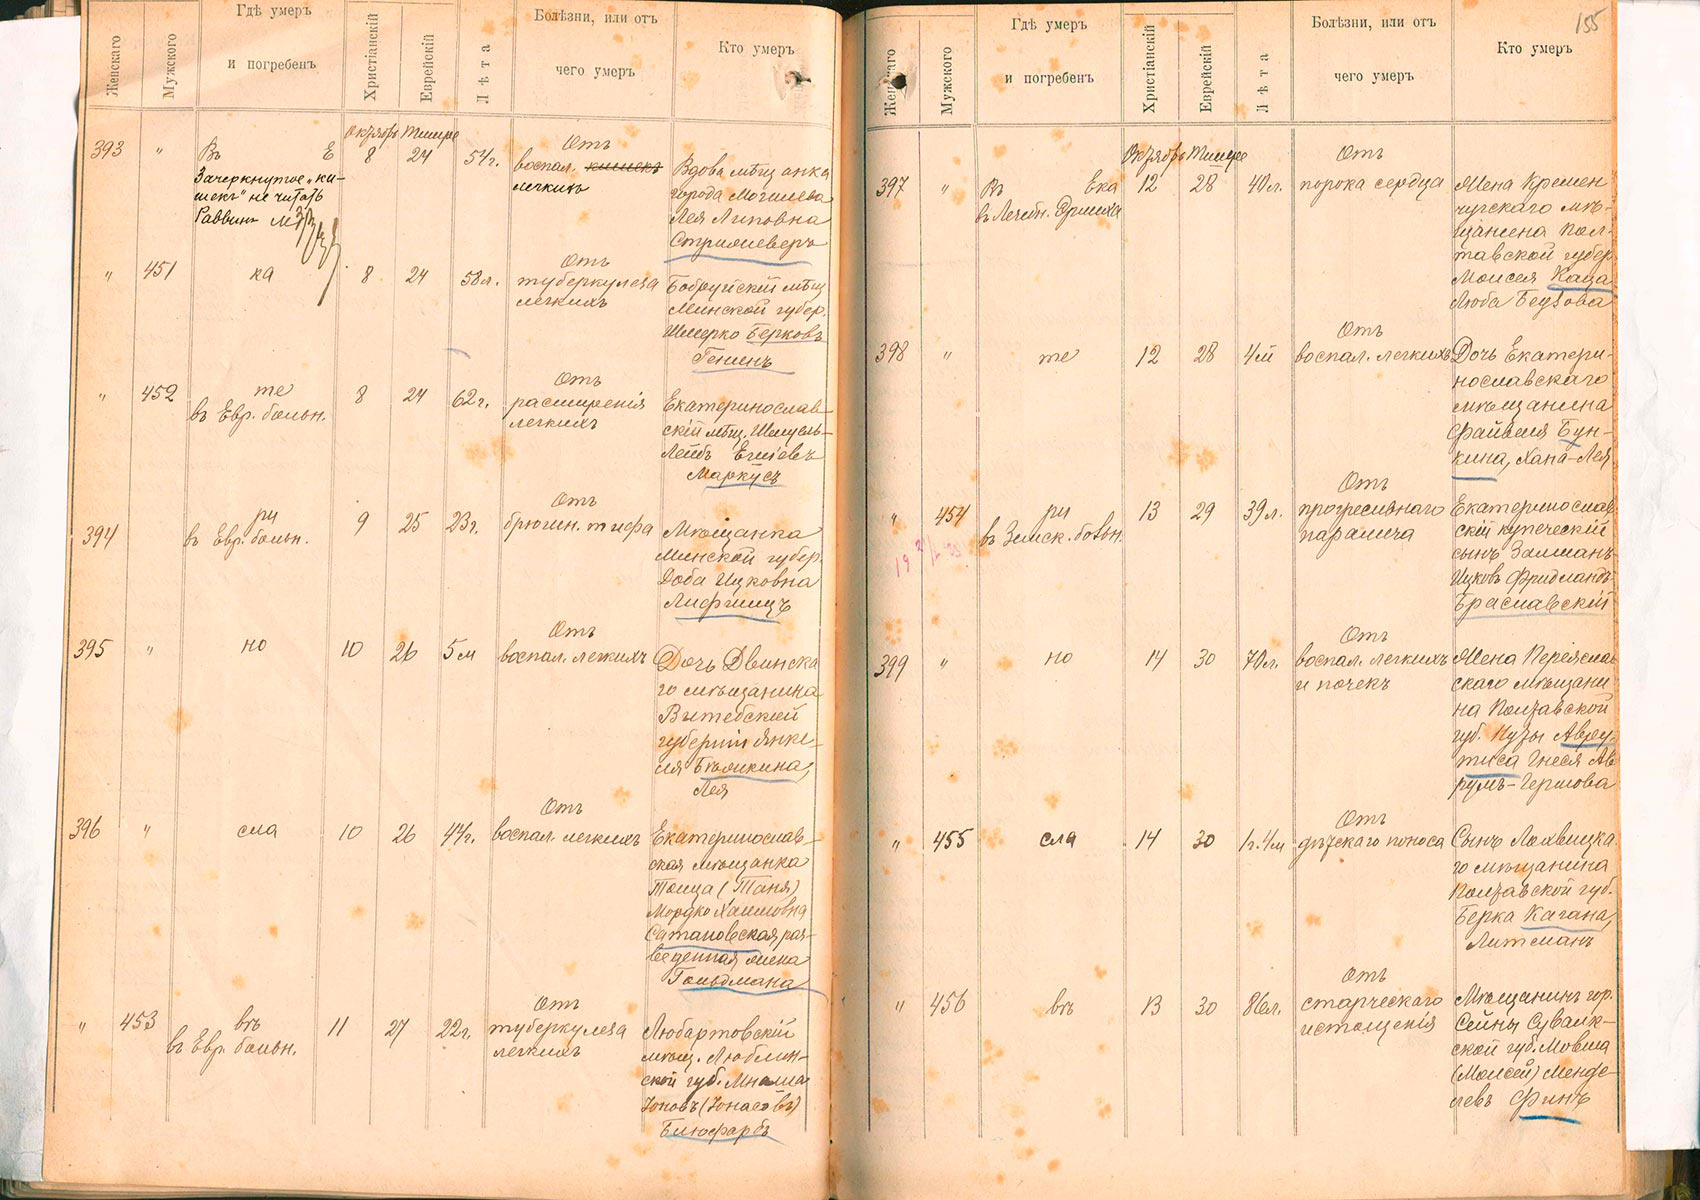 Женскаго
Мужского
Гдѣ умеръ
и погребенъ
Христіанскій
Еврейскій
Лѣта
Болѣзни, или отъ
чего умеръ
Кто умеръ
Октябрь Тишре
393 " Въ Е 8 24 54г.
Зачеркнутое „ки-
шекъ" не читать
Раввинъ
Отъ
воспал. кишекъ
легкихъ
Вдова мѣщанка
города Могилева
Лея Липовна
" 451 ка 8 24 58л.
Отъ
туберкулеза
легкихъ
Бобруйскій мѣщ.
Минской губер.
Шмерко Берковъ
Генинъ
" 452 те 8 24 62г.
въ Евр. больн.
Отъ
расширенія
легкихъ
Екатеринослав-
скій мѣщ. Шмуель-
Лейбъ
Маркусъ
394 ри 9 25 23г.
въ Евр. больн.
Отъ
брюшн. тифа
Мѣщанка
Минской губер.
Доба Ицковна
Лифшицъ
395 " но 10 26 5м
Отъ
воспал. легкихъ
Дочь Двинска
го мѣщанина
Витебской
губерніи Янке-
ля Бѣлкина,
Лея
396 " сла 10 26 44г.
Отъ
воспал. легкихъ
Екатеринослав-
ская мѣщанка
Тоица (Таня)
Мордко Хаимовна
Сатановская, раз-
веденная жена
Гольдмана
" 453 въ 11 27 22г.
въ Евр. больн.
Отъ
туберкулеза
легкихъ
Любартовскій
мѣщ. Люблин-
ской губ.
Іоновъ (Іонасовъ)
Блюфарбъ
155
Женскаго
Мужского
Гдѣ умеръ
и погребенъ
Христіанскій
Еврейскій
Лѣта
Болѣзни, или отъ
чего умеръ
Кто умеръ
Октябрь Тишре
397 " Въ Ека 12 28 40л.
въ Лечебн.
Отъ
порока сердца
Жена Кремен
чугскаго мѣ-
щанина Пол-
тавской губер
Моисея Каца
Люба Беузова
398 " те 12 28 4м
Отъ
воспал. легкихъ
Дочь Екатери-
нославскаго
мѣщанина
Файвеля Бун-
кина, Хана-Лея
" 454 ри 13 29 39л.
въ Земск. больн.
Отъ
прогресивнаго
паралича
Екатеринослав
скій купеческій
сынъ Залманъ
Ицковъ Фридландъ-
Браславскій
399 " но 14 30 70л.
Отъ
воспал. легкихъ
и почекъ
Жена Переяслав
скаго мѣщани
на Полтавской
губ. Нузы Авру-
тиса Гнеся Ав
румъ-Гершова
" 455 сла 14 30 1г.4м
Отъ
дѣтскаго поноса
Сынъ Лохвицка
го мѣщанина
Полтавской губ.
Берка Кагана,
Литманъ
" 456 въ 13 30 86л.
Отъ
старческаго
истощенія
Мѣщанинъ гор.
Сейны Сувалк-
ской губ. Мовша
(Моисей) Менде-
левъ Финъ